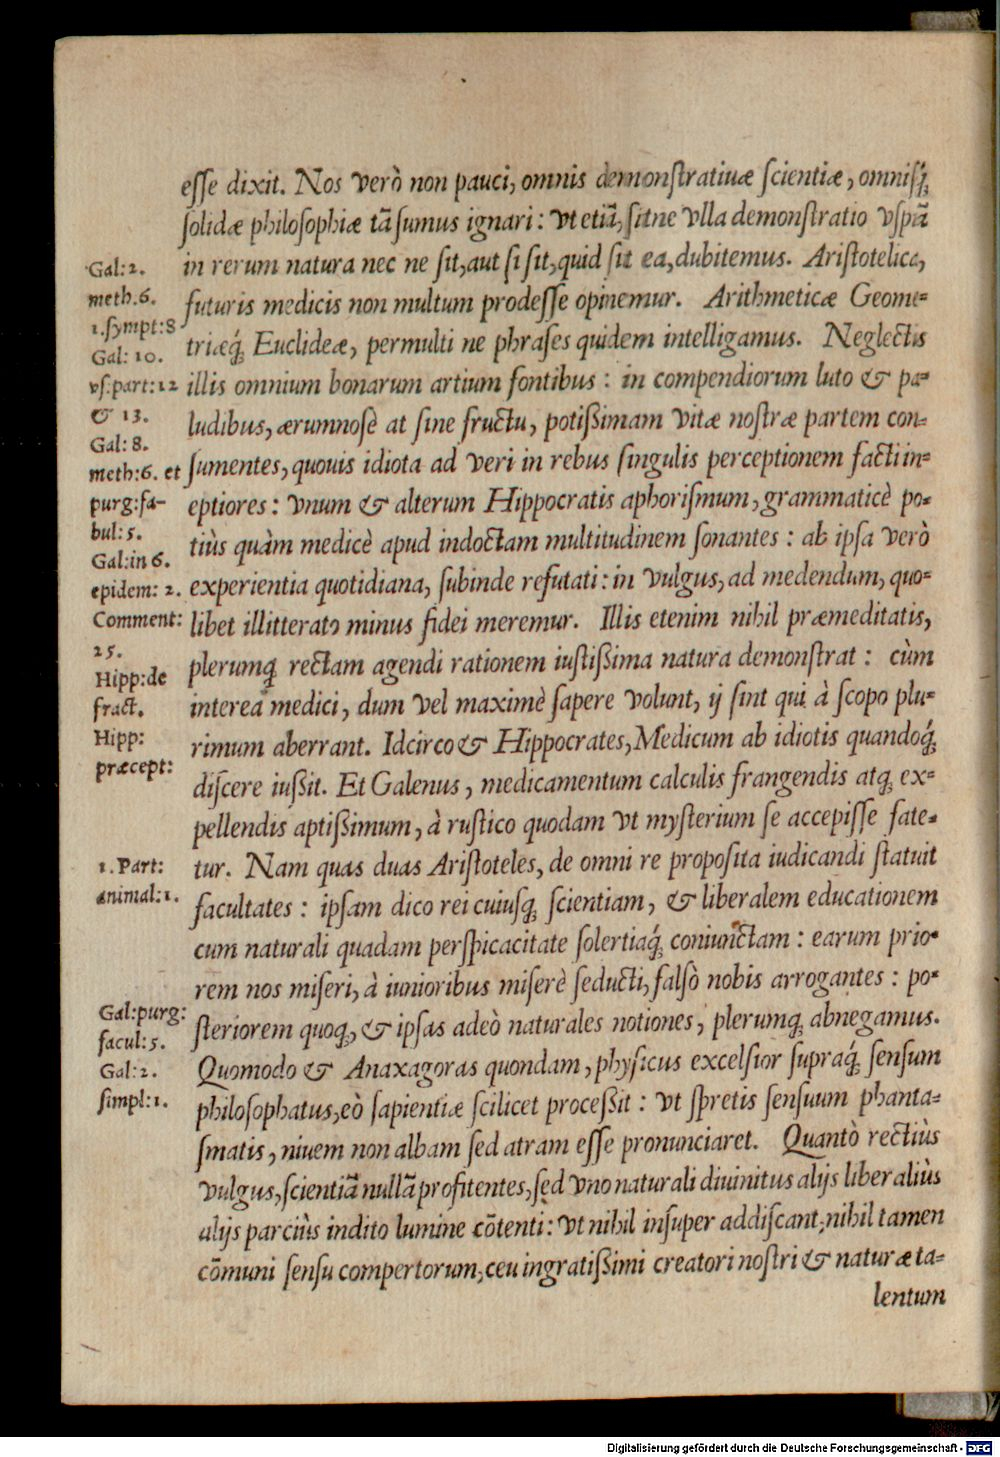 esse dixit. Nos verò non pauci, omnis demonstratiuæ scientiæ, omnisq́;
solidæ philosophiæ tã sumus ignari: vt etiã, sitne vlla demonstratio vspã
in rerum natura nec ne sit, aut si sit, quid sit ea, dubitemus. Aristotelica,
futuris medicis non multum prodesse opinemur. Arithmeticæ Geome-
triæq́; Euclideæ, permulti ne phrases quidem intelligamus. Neglectis
illis omnium bonarum artium fontibus: in compendiorum luto & pa-
ludibus, ærumnosè at sine fructu, potißimam vitæ nostræ partem con-
sumentes, quouis idiota ad veri in rebus singulis perceptionem facti in-
eptiores: vnum & alterum Hippocratis aphorismum, grammaticè po-
tiùs quàm medicè apud indoctam multitudinem sonantes: ab ipsa verò
experientia quotidiana, subinde refutati: in vulgus, ad medendum, quo-
libet illitterato minus fidei meremur. Illis etenim nihil præmeditatis,
plerumq; rectam agendi rationem iustißima natura demonstrat: cùm
interea medici, dum vel maximè sapere volunt, ij sint qui à scopo plu-
rimum aberrant. Idcirco & Hippocrates, Medicum ab idiotis quandoq́;
discere iußit. Et Galenus, medicamentum calculis frangendis atq; ex-
pellendis aptißimum, à rustico quodam vt mysterium se accepisse fate-
tur. Nam quas duas Aristoteles, de omni re proposita iudicandi statuit
facultates: ipsam dico rei cuiusq; scientiam, & liberalem educationem
cum naturali quadam perspicacitate solertiaq́; coniunctam: earum prio-
rem nos miseri, à iunioribus miserè seducti, falsò nobis arrogantes: po-
steriorem quoq;, & ipsas adeò naturales notiones, plerumq; abnegamus.
Quomodo & Anaxagoras quondam, physicus excelsior supraq́; sensum
philosophatus, eò sapientiæ scilicet proceßit: vt spretis sensuum phanta-
smatis, niuem non albam sed atram esse pronunciaret. Quantò rectiùs
vulgus, scientiã nullã profitentes, sed vno naturali diuinitus alijs liberaliùs
alijs parciùs indito lumine cõtenti: vt nihil insuper addiscant, nihil tamen
cõmuni sensu compertorum, ceu ingratißimi creatori nostri & naturæ ta-
lentum
Gal: 2.
meth. 6.
1. sympt: 8
Gal: 10.
vs. part: 12
& 13.
Gal: 8.
meth: 6. et
purg: fa-
bul: 5.
Gal: in 6.
epidem: 2.
Comment:
25.
Hipp: de
fract.
Hipp:
præcept:
1. Part:
animal: 1.
Gal: purg:
facul: 5.
Gal: 2.
simpl: 1.
Digitalisierung gefördert durch die Deutsche Forschungsgemeinschaft - DFG